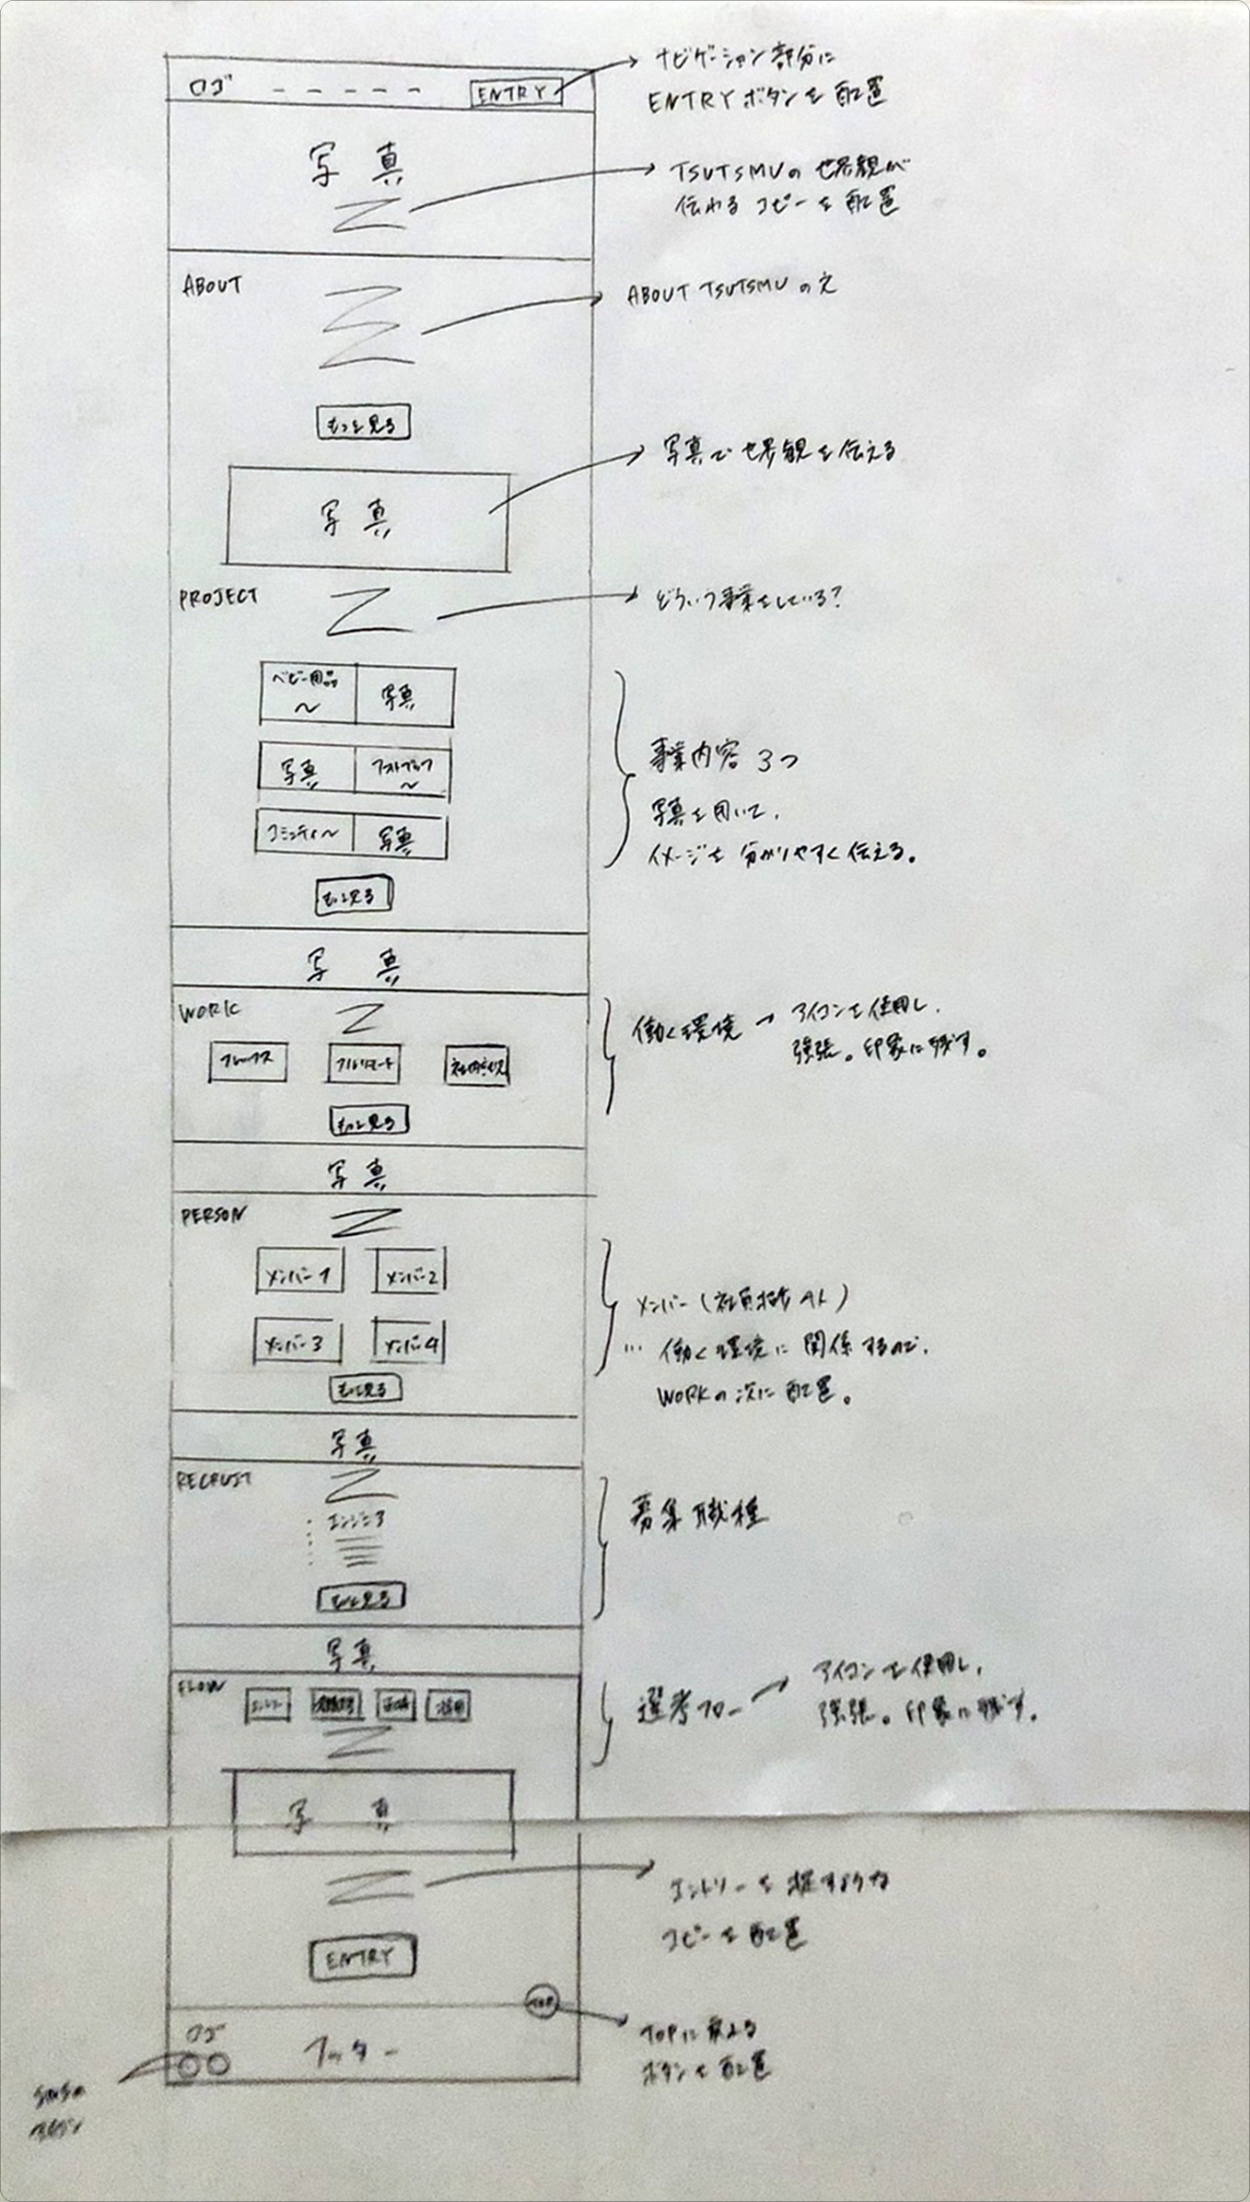 ロゴ
ENTRY
ナビゲーション部分に
ENTRYボタンを配置
写真
TSUTSMUの世界観が
伝わるコピーを配置
ABOUT
ABOUT TSUTSMUの文
もっと見る
写真で世界観を伝える
写真
PROJECT
どういう事業をしている?
ベビー用品
〜
写真
写真
〜
コミュニティ〜
写真
事業内容 3つ
写真を用いて、
イメージを分かりやすく伝える。
もっと見る
写真
WORK
フレックス
フルリモート
働く環境 → アイコンを使用し、
強張。印象に残す。
もっと見る
写真
PERSON
メンバー1
メンバー2
メンバー3
メンバー4
メンバー(社員
… 働く環境に関係するので、
WORKの次に配置。
もっと見る
写真
RECRUIT
エンジニア
募集職種
もっと見る
写真
FLOW
エントリー
選考フロー → アイコンを使用し、
強張。印象に残す。
写真
エントリーを促すような
コピーを配置
ENTRY
TOP
TOPに戻る
ボタンを配置
ロゴ
フッター
SNSの
アイコン